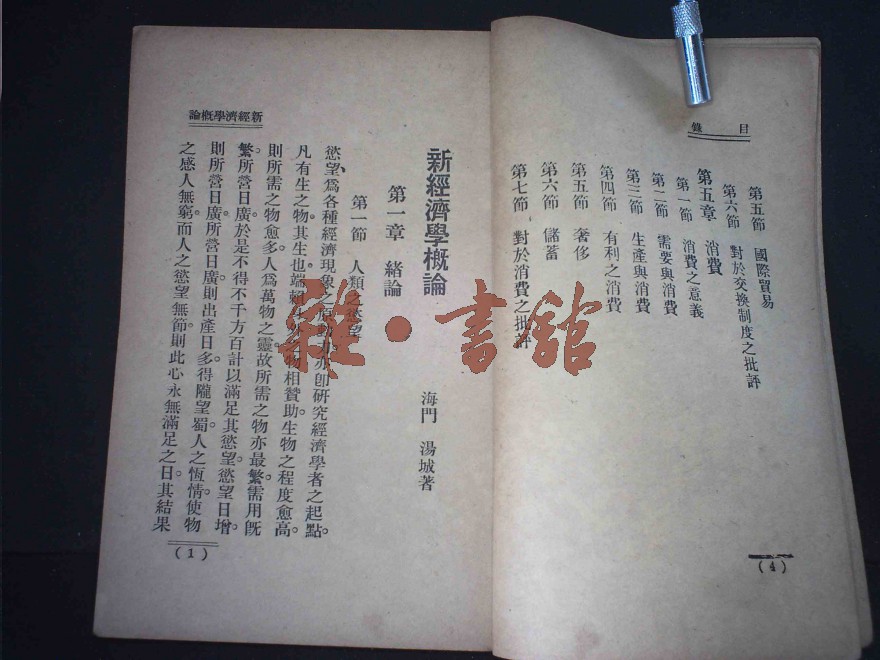 目錄
第五節 國際貿易
第六節 對於交換制度之批評
第五章 消費
第一節 消費之意義
第二節 需要與消費
第三節 生產與消費
第四節 有利之消費
第五節 奢侈
第六節 儲蓄
第七節 對於消費之批評
(4)
新經濟學概論
新經濟學概論
海門 湯城著
第一章 緒論
第一節 人類之慾望
慾望、爲各種經濟現象之原亦卽硏究經濟學者之起點。
凡有生之物其生也端賴外物相贊助。生物之程度愈高。
則所需之物愈多人爲萬物之靈故所需之物亦最繁需用旣
繁。所營日廣於是不得不千方百計以滿足其慾望。慾望日增。
則所營日廣。所營日廣。則出產日多。得隴望蜀人之恆情使物
之感人無窮而人之慾望無節。則此心永無滿足之日其結果
(1)
雜·書館